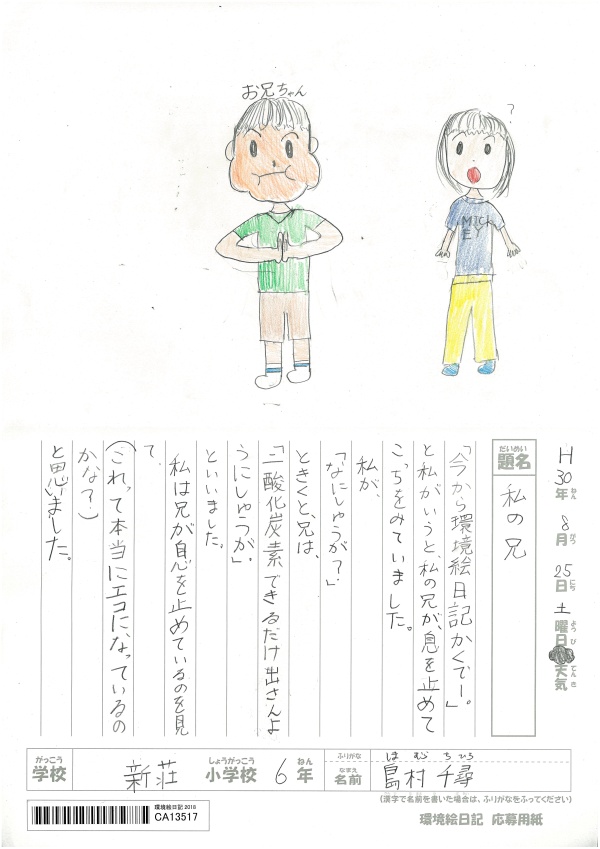 お兄ちゃん
?
MICK
EY
H30年ねん 8月がつ 25日にち 土曜日ようび 天気てんき
題名だいめい 私の兄
「今から環境絵日記かくでー。」
と私がいうと、私の兄が、息を止めて
こっちをみていました。
私が、
「なにしゅうが?」
ときくと、兄は、
「二酸化炭素できるだけ出さんよ
うにしゅうが。」
といいました。
私は兄が息を止めているのを見
て、
(これって本当にエコになっているの
かな?)
と思いました。
学校がっこう 新荘 小学校しょうがっこう 6年ねん
ふりがな ちひろ
名前なまえ 島村 千尋
(漢字で名前を書いた場合は、ふりがなをふってください)
環境絵日記2018
CA13517
環境絵日記 応募用紙